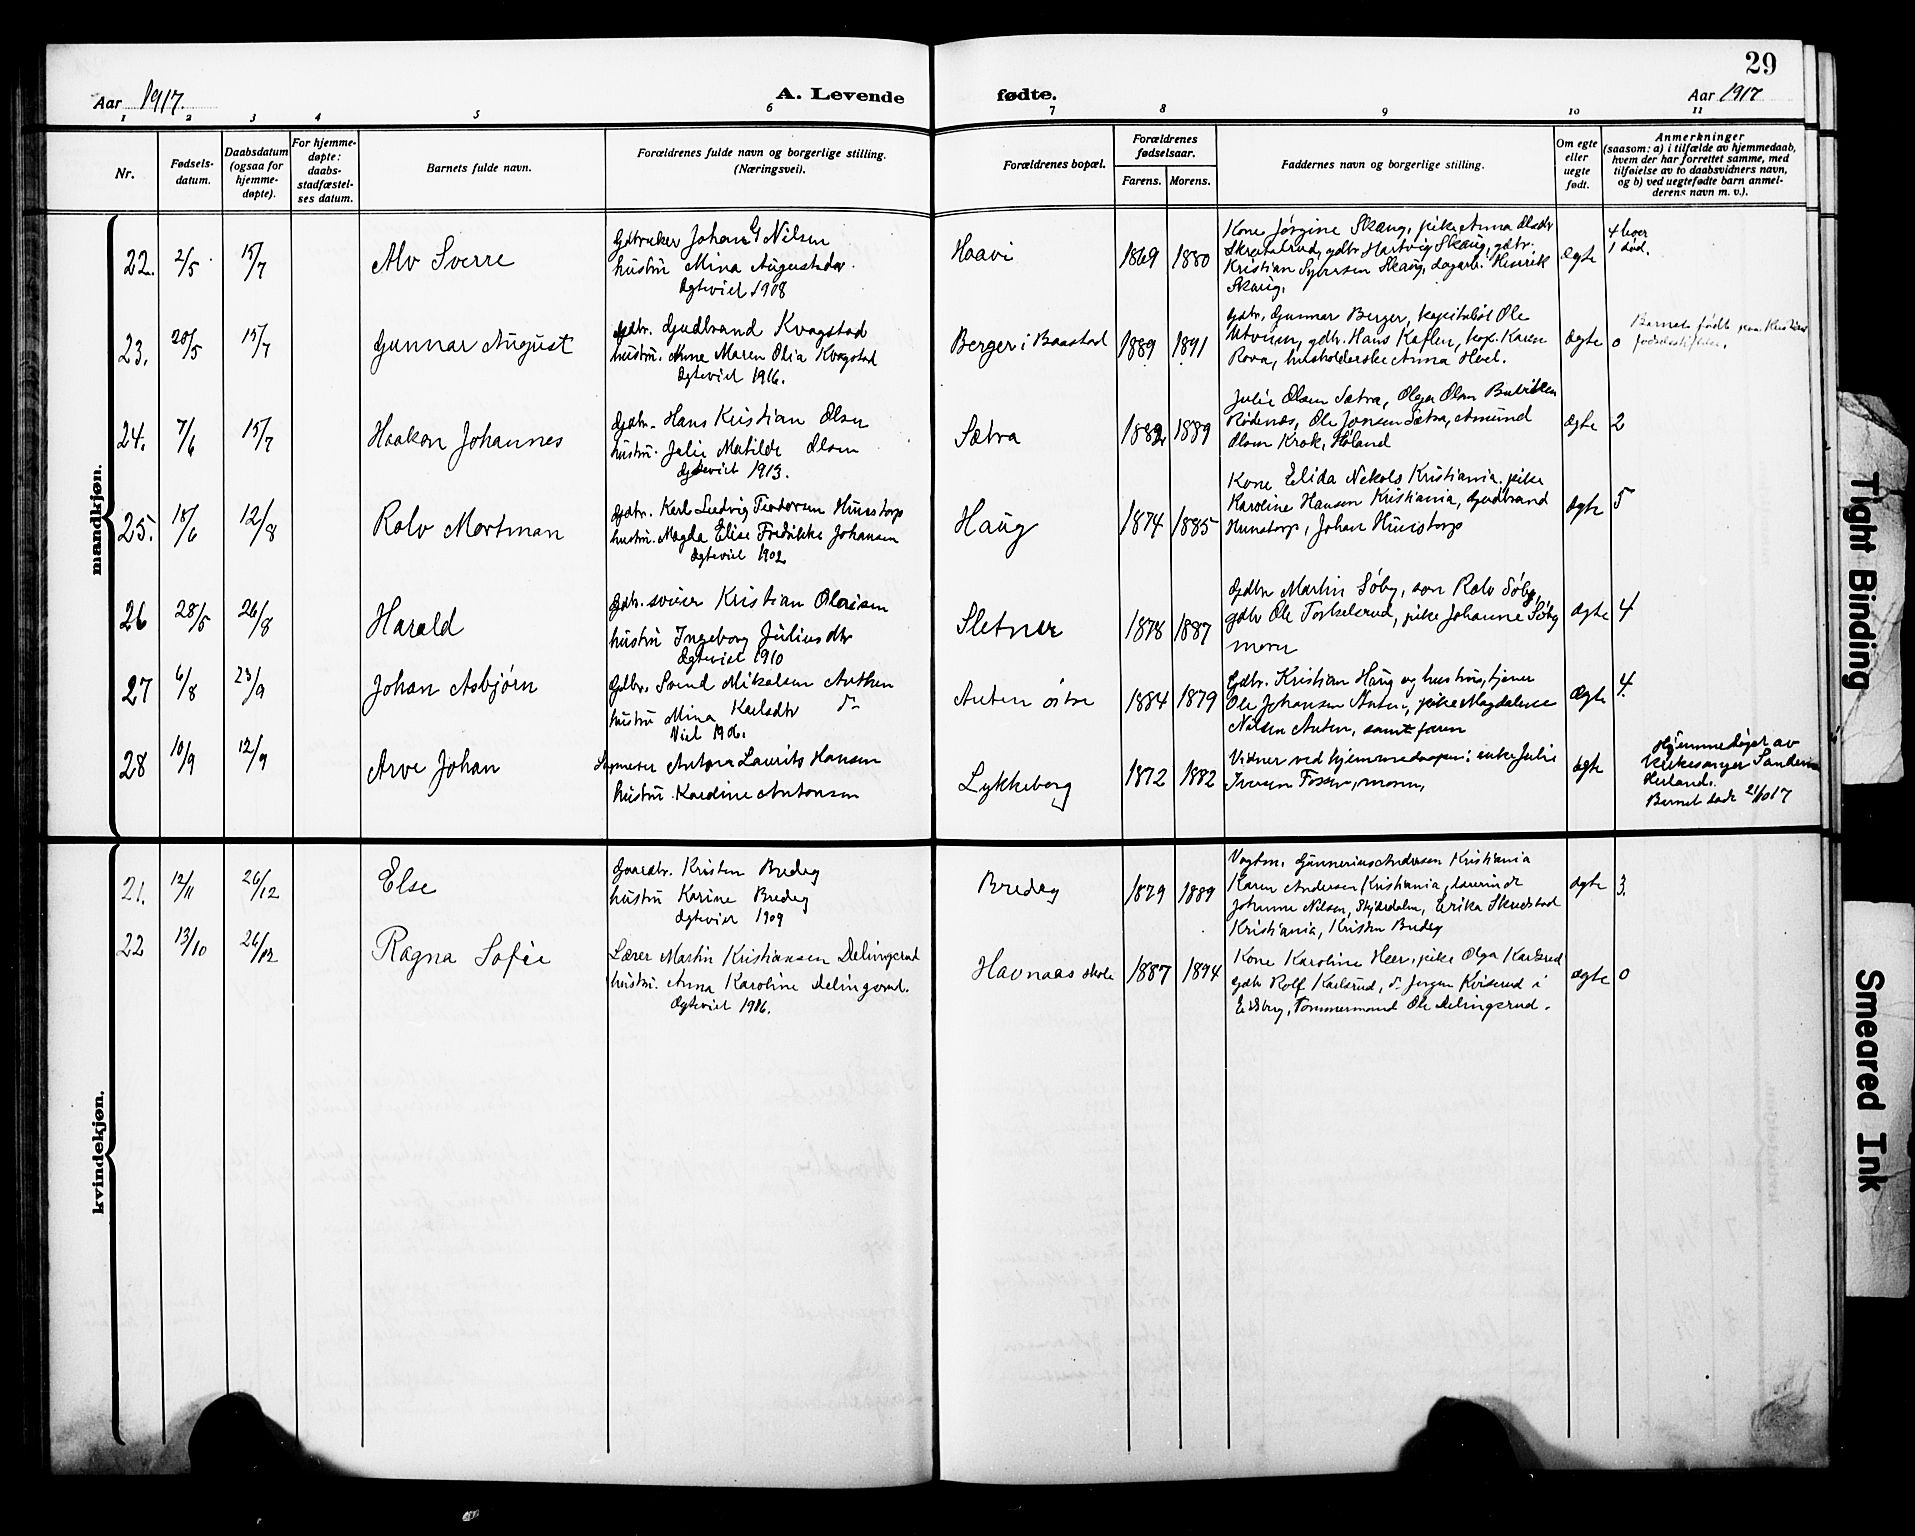 29
Aar 1917.
A. Levende
fødte.
Aar 1917
1 2 3 4 5 6 7 8 9 10 11
Nr.
Fødsels-
datum.
Daabsdatum
(ogsaa for
hjemme-
døpte).
For hjemme-
døpte:
daabs-
stadfæstel-
ses datum.
Barnets fulde navn.
Forældrenes fulde navn og borgerlige stilling.
(Næringsvei).
Forældrenes bopæl.
Forældrenes
fødselsaar.
Farens. Morens.
Faddernes navn og borgerlige stilling.
Om egte
eller
uegte
født.
Anmerkninger
(saasom: a) i tilfælde av hjemmedaab,
hvem der har forrettet samme, med
tilføielse av to daabsvidners navn,
og b) ved uegtefødte barn anmel-
derens navn m. v.).
mandkjøn.
22. 2/5 15/7
Alv Sverre
Gdbruker Johan G Nilsen
hustru Mina Augustadtr.
Ægteviet 1908
Haavi
1869 1880
Kone Jørgine Skaug, pike Anna Olsdtr
Skretalrud, gdbr. Hartvig Skaug, gdbr.
Kristian Syversen Skaug, dagarb. Henrik
Skaug.
Ægte
4 lever
1 död.
23. 20/5 15/7
Gunnar August
Gdbr. Gudbrand Kvagstad
hustru. Anne Maren Olia Kvagstad
Ægteviet 1916.
Berger i Baastad
1889 1891
Gdbr. Gunnar Berger, Ole
gdbr. Hans Kaflen, Karen
husholderske Anna
Ægte
0
Barnet født paa
fødselsstiftelse.
24. 7/6 15/7
Haakon Johannes
Gdbr. Hans Kristian Olsen
hustru. Julie Matilde Olsen
Ægteviet 1913.
Sætra
1882 1889
Julie Olsen Sætra, Olga Olsen
Rödenæs, Ole Jonsen Sætra, Amund
Olsen Krok, Høland
Ægte
2
25. 18/6 12/8
Rolv Mortman
Gdbr. Karl Ludvig Teodorsen Hunstorp
hustru. Magda Elise Fredrikke Johansen
Ægteviet 1902
Haug
1874 1885
Kone Elida Nekols Kristiania, pike
Karoline Hansen Kristiania, Gudbrand
Hunstorp, Johan Hunstorp
Ægte
5
26 28/5 26/8
Harald
Gdbr. Kristian Olaisen
hustru Ingeborg Juliusdtr
Ægteviet 1910
Sletner
1878 1887
Gdbr Martin Söby, søn Rolv Söby,
gdbr Ole Torkelsrud, pike Johanne Söby
moren
Ægte
4
27 6/8 23/9
Johan Asbjørn
Gdbr. Svend Mikalsen Auten
hustru Mina Karlsdtr do
Viet 1906.
Auten östre
1884 1879
Gdbr. Kristian Haug og hustru, tjener
Ole Johansen Auten, pike Magdalene
Nilsen Auten, samt faren
Ægte
4.
28 10/9 12/9
Arve Johan
Anton Laurits Hansen
hustru Kardine Antonsen
Lykkeborg
1872 1882
Vidner ved hjemmedaapen: enke Julie
Iversen Fosser, moren,
Ægte
Hjemmedøpt av
Kirkesanger Sandem
Barnet døde 21/10 17
kvindekjøn.
21. 12/11 26/12
Else
Gaardbr. Kristen Bredeg
hustru Karine Bredeg
Ægteviet 1909
Bredeg
1879 1889
Vagtm. Gunnerius Andersen Kristiania
Karen Andersen Kristiania, lærerinde
Johanne Nilsen, Skjærdalen, Erika Skredstad
Kristiania, Kristen Bredeg
Ægte
3.
22 13/10 26/12
Ragna Sofie
Lærer Martin Kristiansen Delingsrud
hustru. Anna Karoline Delingsrud.
Ægteviet 1916.
Havnaas skole
1887 1894
Kone Karoline Heer, pike Olga Karlsrud
gdbr Rolf Karlsrud, do Jørgen Kviserud i
Eidsberg, Tømmermand Ole Delingsrud.
Ægte
0
Tight Binding
Smeared Ink